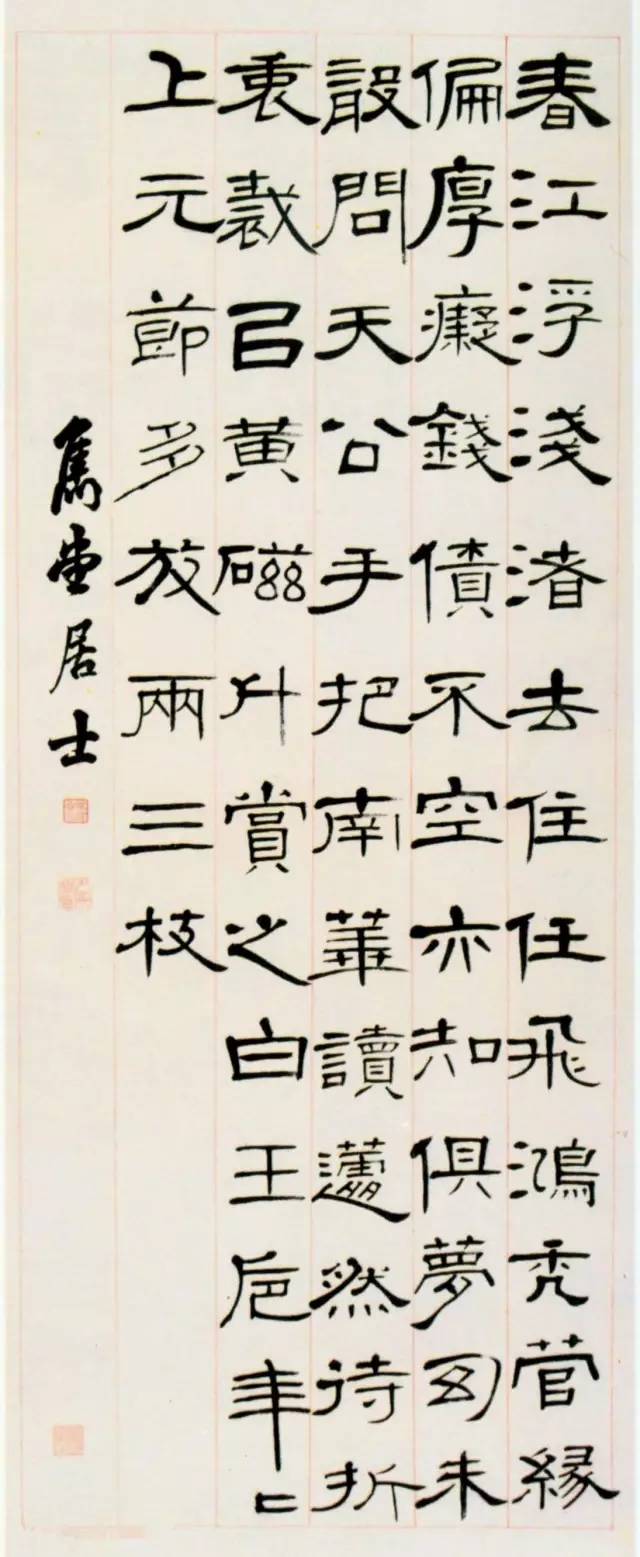 春江浮淺渚去住任飛鴻禿管緣
偏厚癡錢債不空亦知俱夢幻未
敢問天公手把南華讀蘧然待折
衷裁㠯黃磁斗賞之白玉卮年〻
上元節多放兩三枝
居士